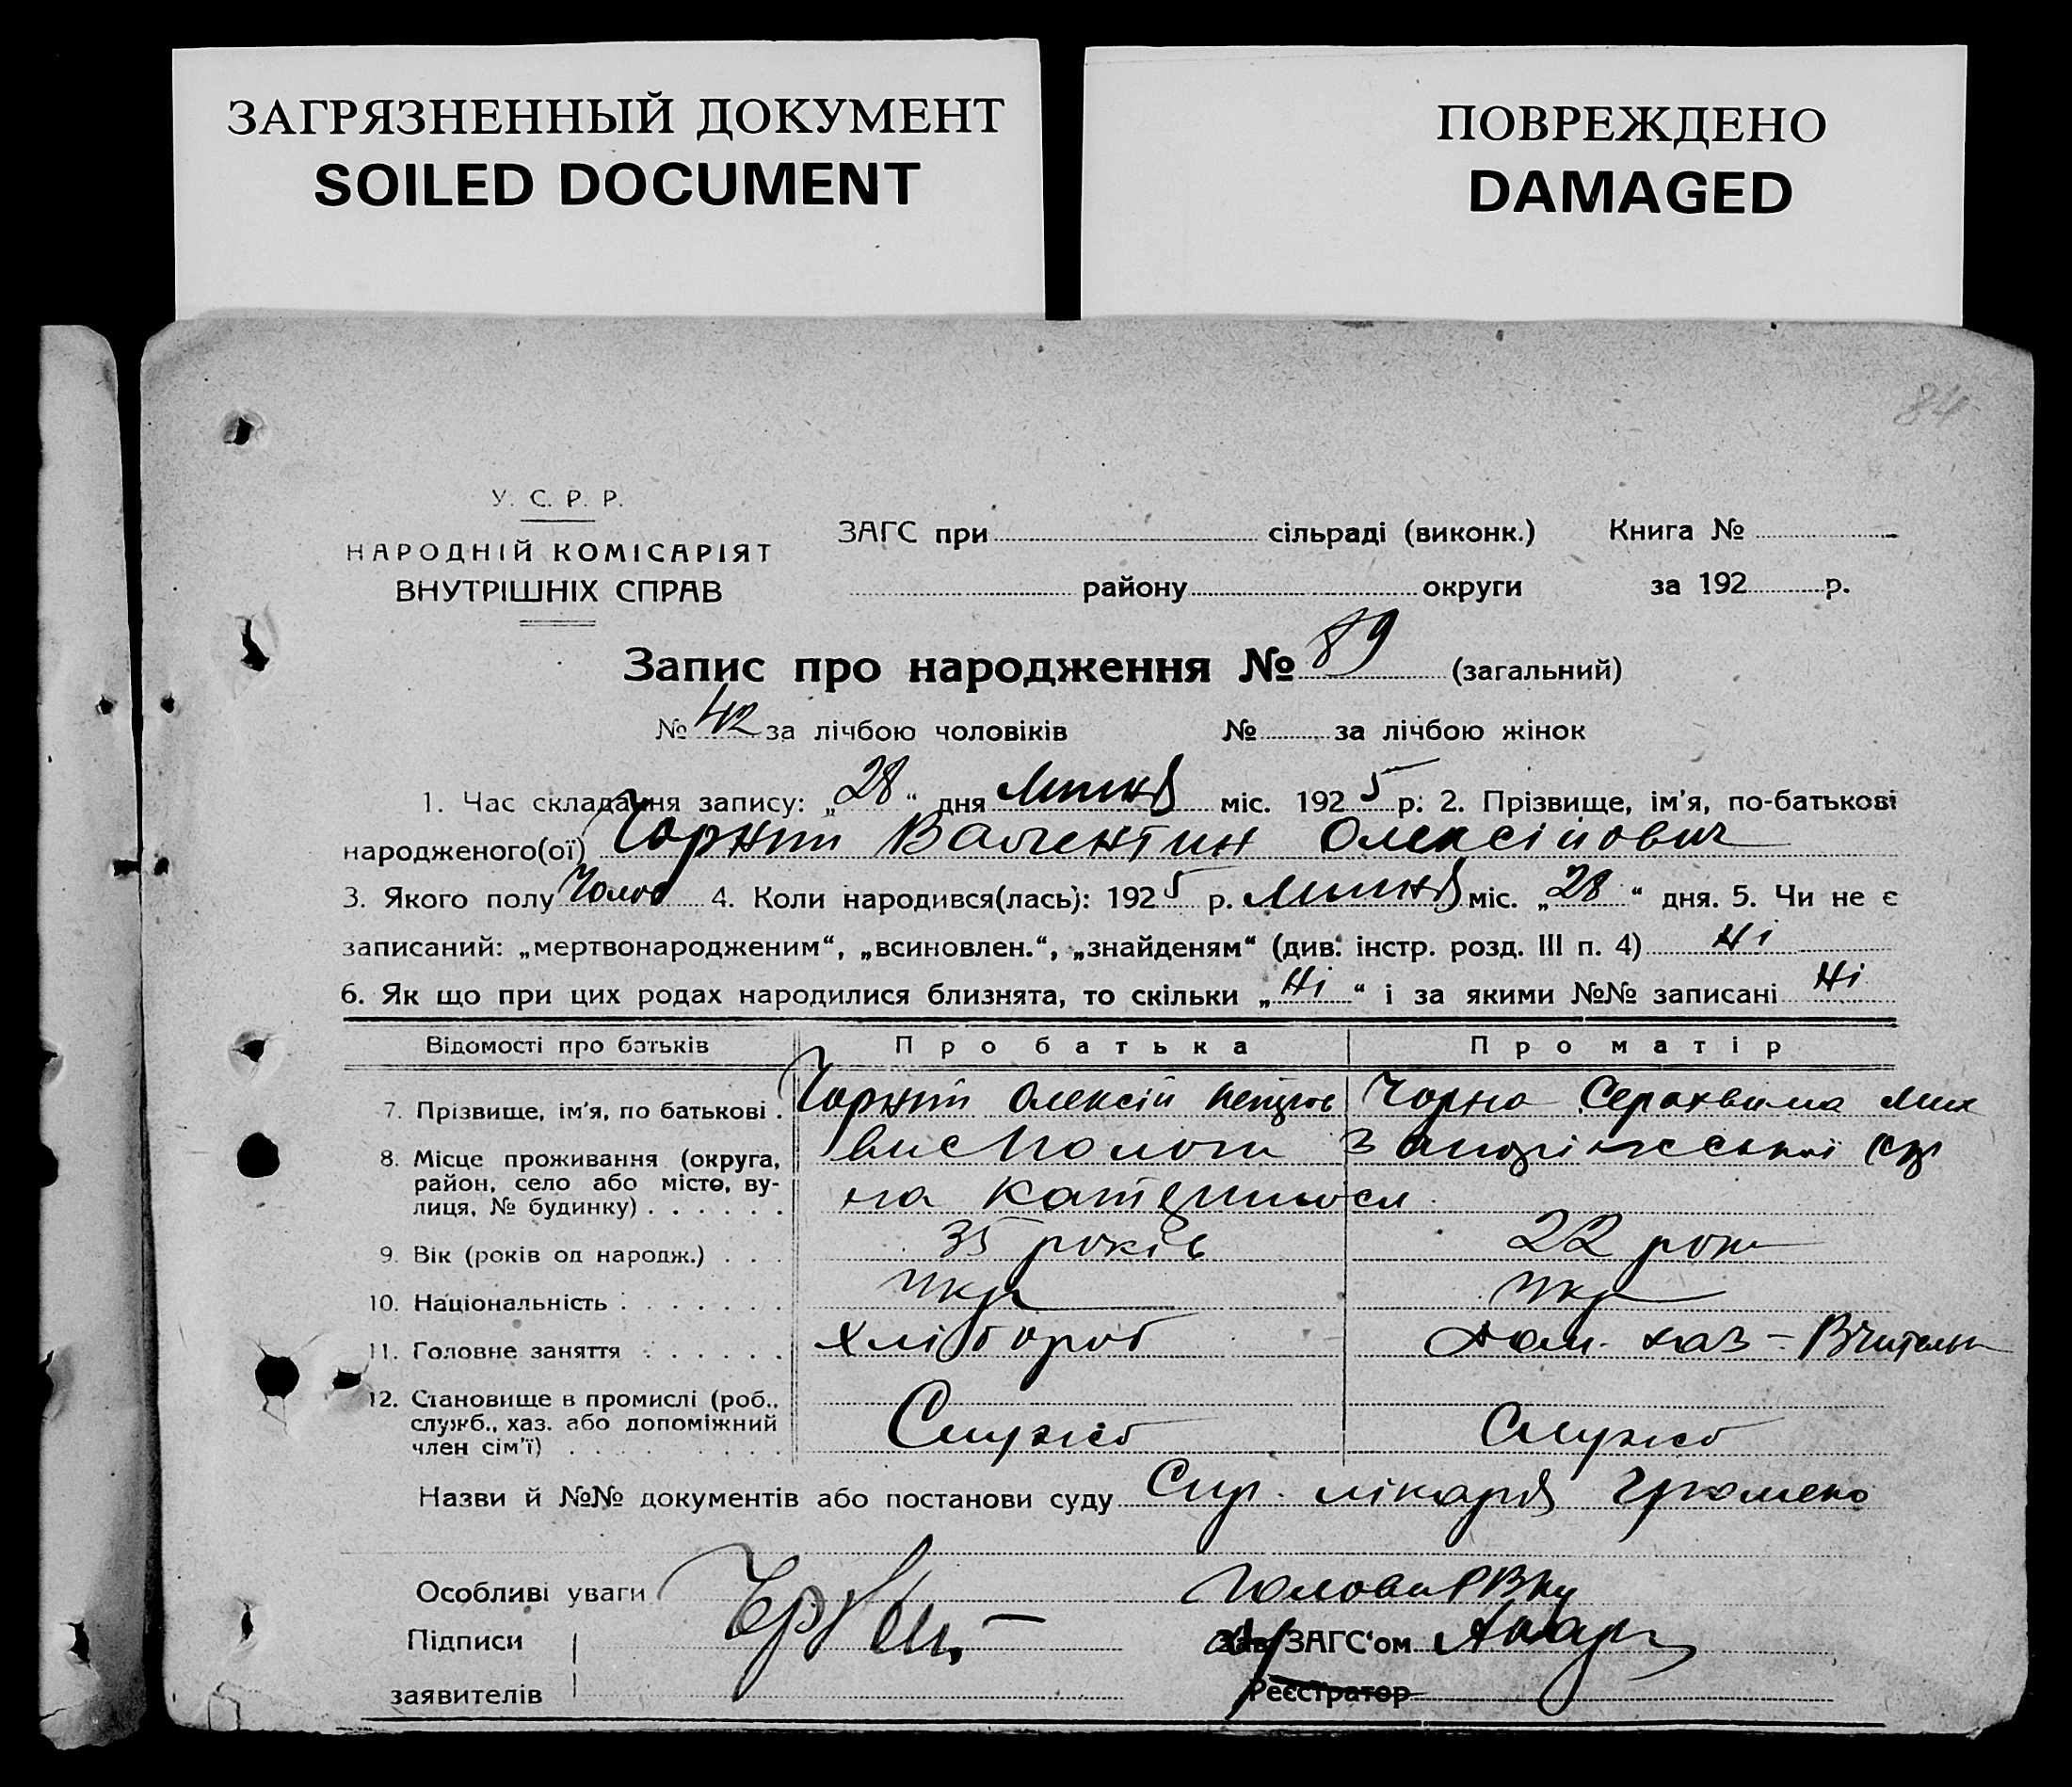 ЗАГРЯЗНЕННЫЙ ДОКУМЕНТ
SOILED DOCUMENT
ПОВРЕЖДЕНО
DAMAGED
84
У. С. Р. Р.
НАРОДНІЙ КОМІСАРІЯТ
ВНУТРІШНІХ СПРАВ
ЗАГС при сільраді (виконк.) Книга №
району округи за 192 р.
Запис про народження № 89 (загальний)
№ 42 за лічбою чоловіків № за лічбою жінок
1. Час складання запису: „28“ дня Липня міс. 1925 р. 2. Прізвище, ім'я, по-батькові
народженого(ої) Чорний Валентин Олексійович
3. Якого полу Чолов 4. Коли народився(лась): 1925 р. Липня міс. „28“ дня. 5. Чи не є
записаний: „мертвонародженим“, „всиновлен.“, „знайденям“ (див. інстр. розд. III п. 4) Ні
6. Як що при цих родах народилися близнята, то скільки „Ні“ і за якими №№ записані Ні
Відомості про батьків Про батька Про матір
7. Прізвище, ім'я, по батькові . Чорний Олексій Чорна Серахвима Мих
8. Місце проживання (округа,
район, село або місто, ву-
лиця, № будинку) . . . . . . на
9. Вік (років од народж.) . . . 35 років 22 роки
10. Національність . . . . . . . Укр Укр
11. Головне заняття . . . . . . Хлібороб Дом. хаз - Вчителька
12. Становище в промислі (роб.,
служб., хаз. або допоміжний
член сім'ї) . . . . . . . . . Служб Служб
Назви й №№ документів або постанови суду лікаря
Особливі уваги Голова РВКу
Підписи Зав. ЗАГС'ом
заявителів Реєстратор